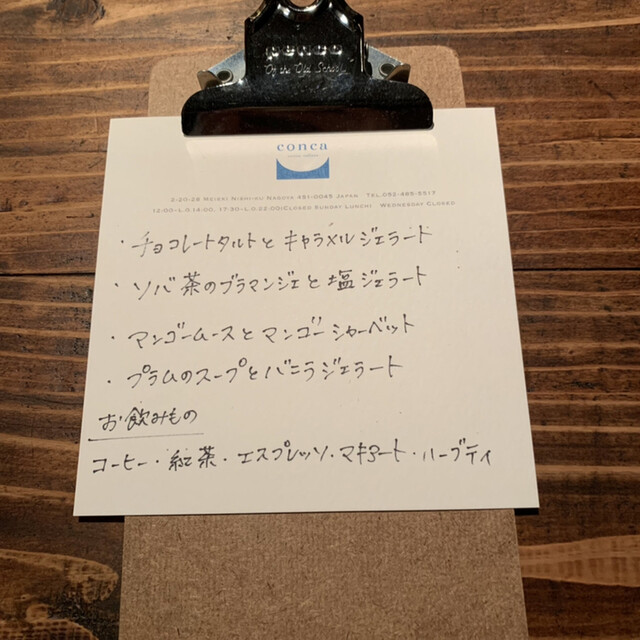 penco
conca
2-20-28 Meieki Nishi-ku Nagoya 451-0045 Japan Tel.052-485-5517
12:00-L.O.14:00, 17:30-L.O.22:00(Closed Sunday Lunch) Wednesday Closed
・チョコレートタルトとキャラメルジェラード
・ソバ茶のブラマンジェと塩ジェラート
・マンゴームースとマンゴーシャーベット
・プラムのスープとバニラジェラート
お飲みもの
コーヒー・紅茶・エスプレッソ・マキアート・ハーブティ